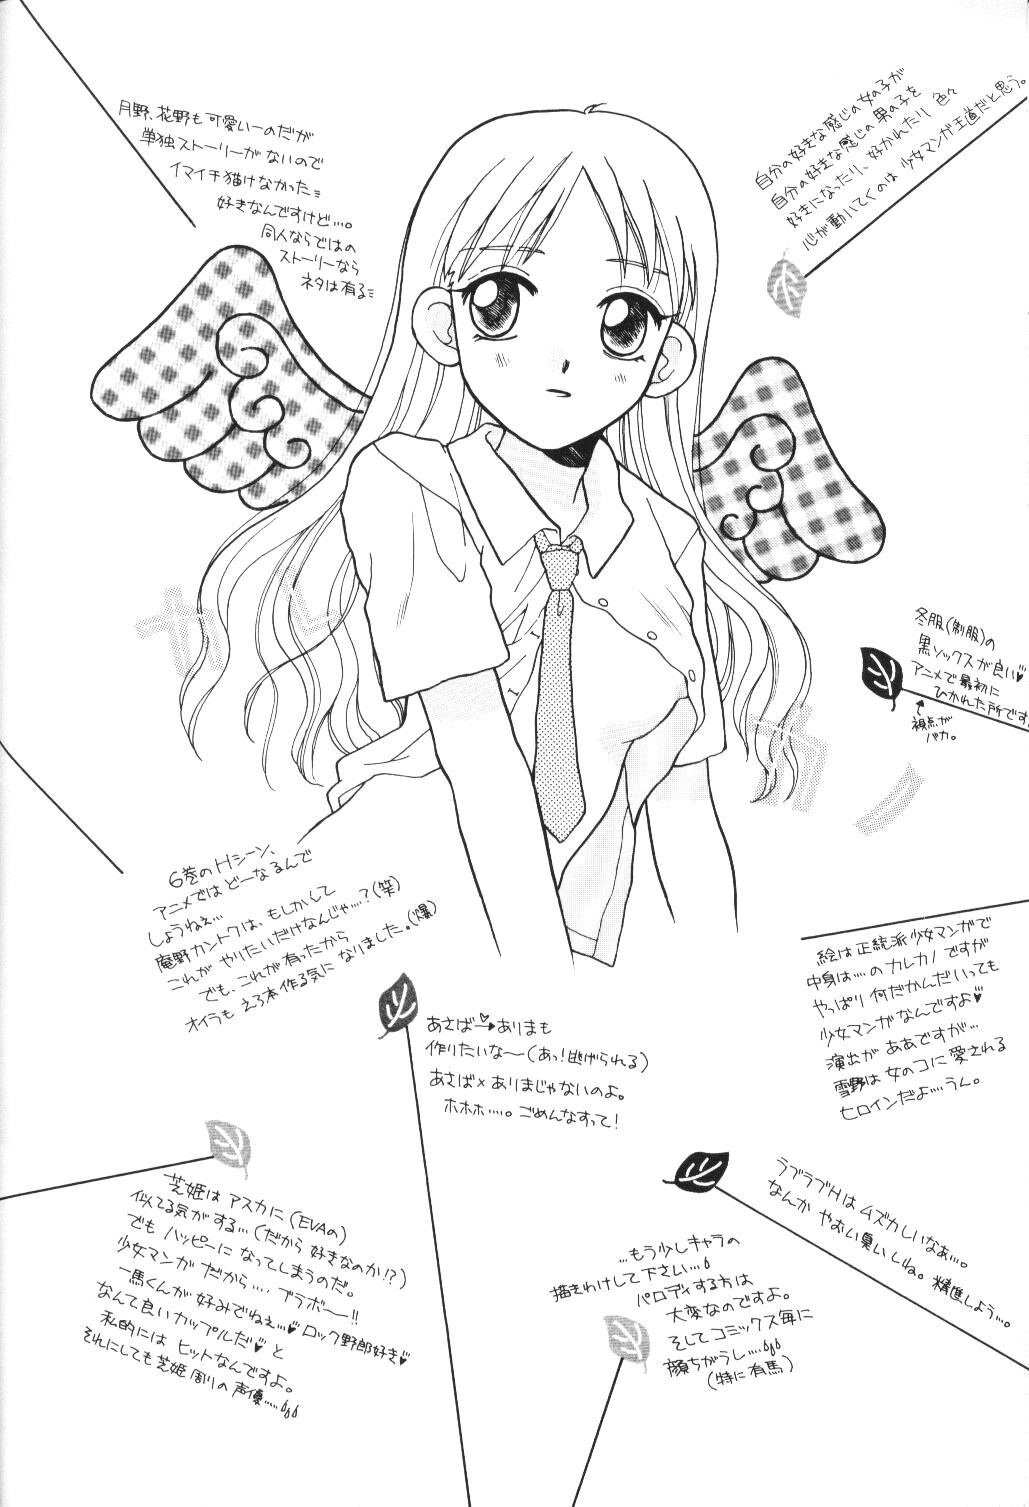 月野、花野も可愛いーのだが
単独ストーリーがないので
イマイチ描けなかった
好きなんですけど…。
同人ならではの
ストーリーなら
ネタは有る
自分の好きな感じの女の子が
自分の好きな感じの男の子を
好きになったり、好かれたり 色々
心が動いてくのは 少女マンガ王道だと思う。
冬服(制服)の
黒ソックスが良い♥
アニメで最初に
ひかれた所です
視点が
バカ。
6巻のHシーン、
アニメではどーなるんで
しょうねぇ…
庵野カントクは、もしかして
これが やりたいだけなんじゃ…?(笑)
でも、これが有ったから
オイラも えろ本作る気に なりました。(爆)
絵は正統派少女マンガで
中身は…のカレカノですが
やっぱり何だかんだいっても
少女マンガなんですよ♥
演出が ああですが…
雪野は 女のコに愛される
ヒロインだよ…うん。
あさば→ありまも
作りたいな〜(あっ!逃げられる)
あさば×ありまじゃないのよ。
ホホホ…。ごめんなすって!
芝姫は アスカに(EVAの)
似てる気がする…(だから好きなのか!?)
でも ハッピーに なってしまうのだ。
少女マンガ だから… ブラボー!!
一馬くんが 好みでねぇ…♥ロック野郎好き♥
なんて良いカップルだ♥と
私的には ヒットなんですよ。
それにしても芝姫 周りの 声優…
ラブラブHは ムズカしいなぁ…。
なんか やおい臭いしね。精進しよう…。
…もう少しキャラの
描きわけして下さい…
パロディする方は
大変なのですよ。
そしてコミックス毎に
顔ちがうし…
(特に有馬)